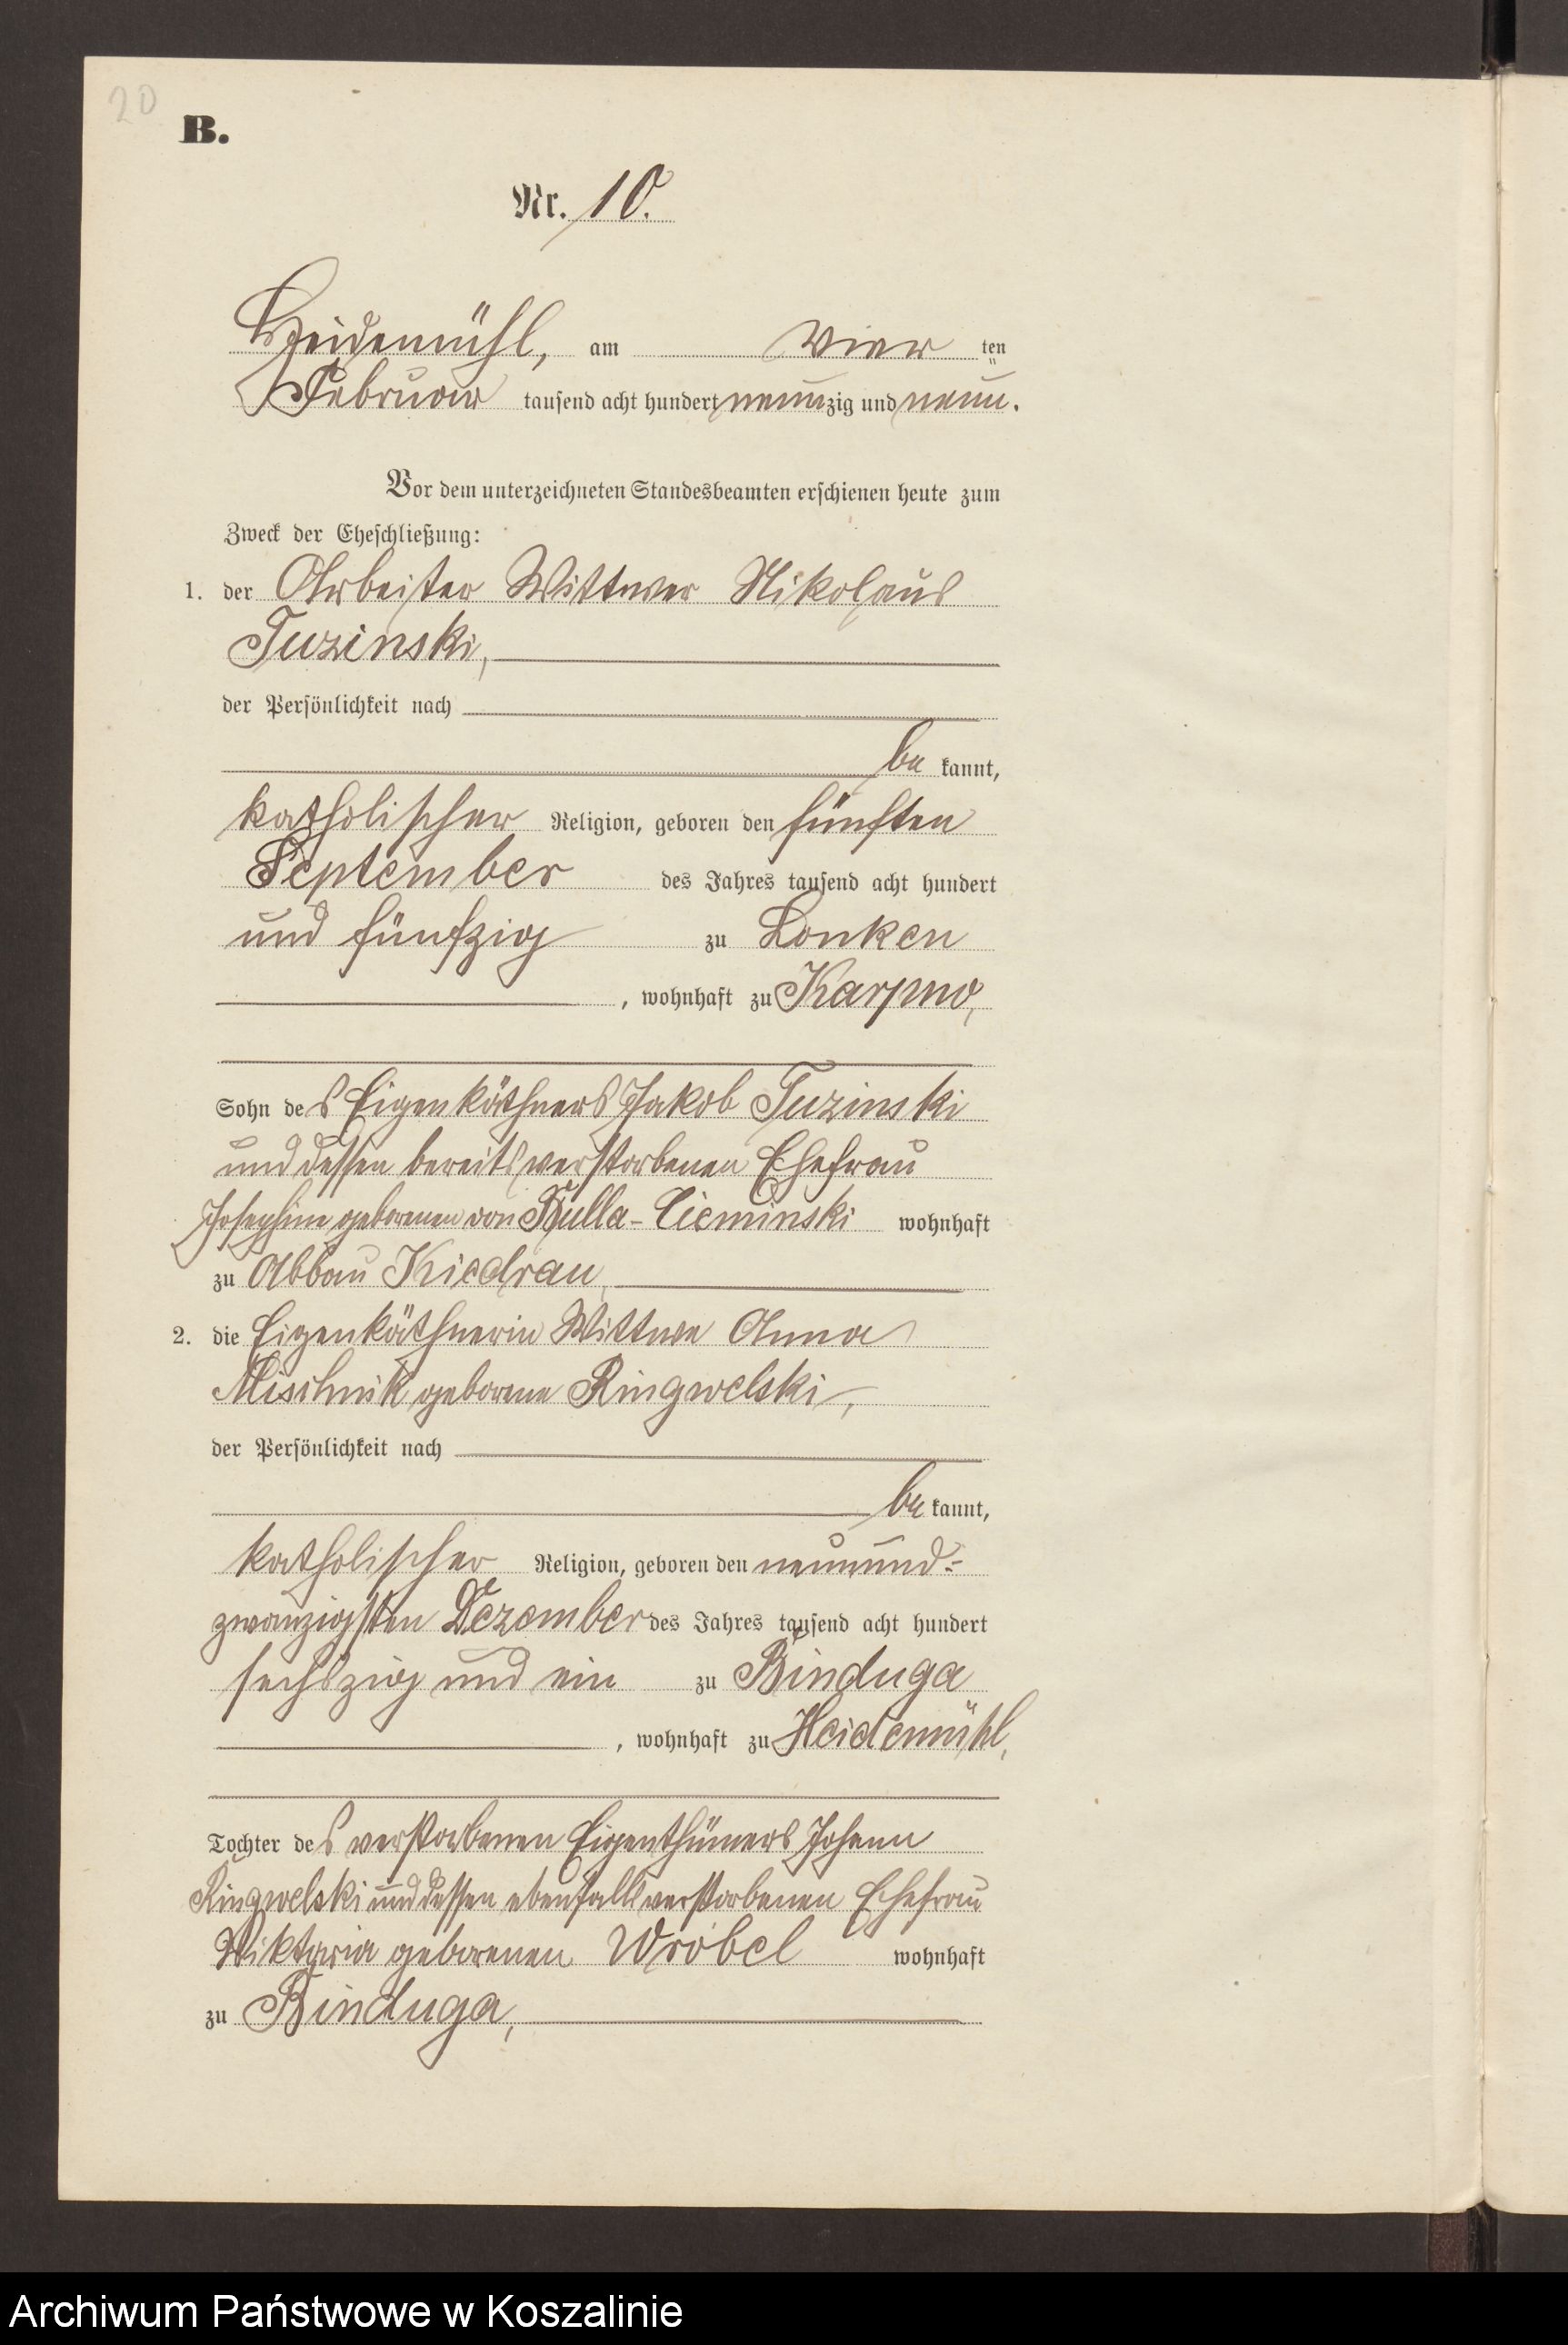 20
B.
Nr. 10.
Heidemühl, am vier ten
Februar tausend acht hundert neunzig und neun.
Vor dem unterzeichneten Standesbeamten erschienen heute zum
Zweck der Eheschließung:
1. der Arbeiter Wittwer Nikolaus
Tuzinski,
der Persönlichkeit nach
be kannt,
katholischer Religion, geboren den fünften
September des Jahres tausend acht hundert
und fünfzig zu Lonken
, wohnhaft zu Karpno,
Sohn des Eigenkäthners Jakob Tuzinski
und dessen bereits verstorbenen Ehefrau
Josephine geborenen von Kulla-Cieminski wohnhaft
zu Abbau Kiedrau,
2. die Eigenkäthnerin Wittwe Anna
Mischnik geborene Ringwelski,
der Persönlichkeit nach
be kannt,
katholischer Religion, geboren den neunund-
zwanzigsten Dezember des Jahres tausend acht hundert
sechszig und ein zu Binduga
, wohnhaft zu Heidemühl,
Tochter des verstorbenen Eigenthümers Johann
Ringwelski und dessen ebenfalls verstorbenen Ehefrau
Viktoria geborenen Wrobel wohnhaft
zu Binduga,
Archiwum Państwowe w Koszalinie